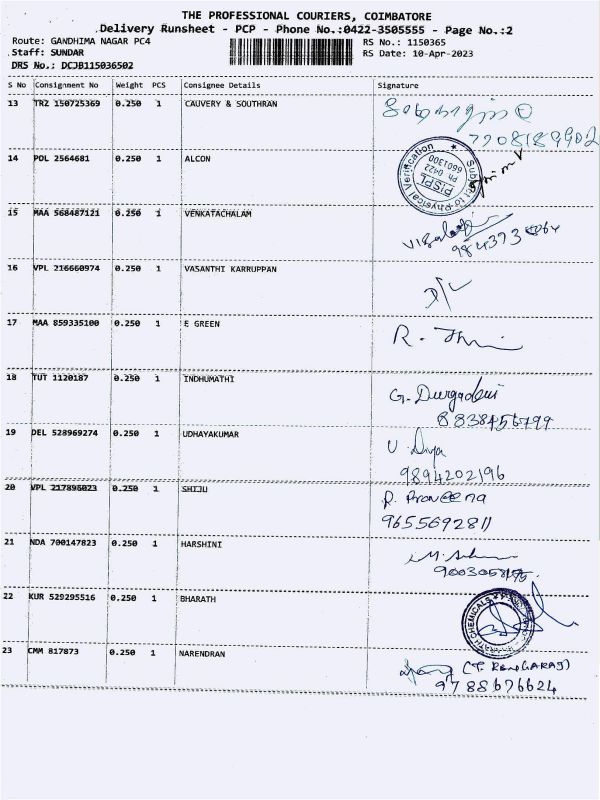 THE PROFESSIONAL COURIERS, COIMBATORE
Delivery Runsheet - PCP - Phone No.:0422-3505555 - Page No.:2
Route: GANDHIMA NAGAR PC4 RS No.: 1150365
Staff: SUNDAR RS Date: 10-Apr-2023
DRS No.: DCJB115036502
S No Consignment No Weight PCS Consignee Details Signature
13 TRZ 150725369 0.250 1 CAUVERY & SOUTHRAN
7708189902
14 POL 2564681 0.250 1 ALCON
Subject to Physical Verification
PISPL
Ph 0422
6601300
15 MAA 568487121 0.250 1 VENKATACHALAM
16 VPL 216660974 0.250 1 VASANTHI KARRUPPAN
17 MAA 859335100 0.250 1 E GREEN
R.
18 TUT 1120187 0.250 1 INDHUMATHI
G. Durgadevi
8838456799
19 DEL 528969274 0.250 1 UDHAYAKUMAR
U. Diya
9894202196
20 VPL 217896023 0.250 1 SHIJU
P. Praveena
9655692811
21 NDA 700147823 0.250 1 HARSHINI
22 KUR 529295516 0.250 1 BHARATH
CHEMICALS
23 CMM 817873 0.250 1 NARENDRAN
(T. RENGARAJ)
9788676624